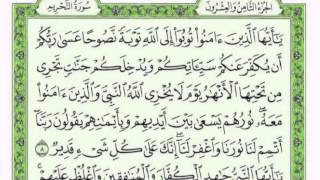 الجزء الثامن والعشرون سورة التحريم
يَـٰٓأَيُّهَا ٱلَّذِينَ ءَامَنُوا۟ تُوبُوٓا۟ إِلَى ٱللَّهِ تَوْبَةً نَّصُوحًا عَسَىٰ رَبُّكُمْ
أَن يُكَفِّرَ عَنكُمْ سَيِّـَٔاتِكُمْ وَيُدْخِلَكُمْ جَنَّـٰتٍ تَجْرِى
مِن تَحْتِهَا ٱلْأَنْهَـٰرُ يَوْمَ لَا يُخْزِى ٱللَّهُ ٱلنَّبِىَّ وَٱلَّذِينَ ءَامَنُوا۟
مَعَهُۥ نُورُهُمْ يَسْعَىٰ بَيْنَ أَيْدِيهِمْ وَبِأَيْمَـٰنِهِمْ يَقُولُونَ رَبَّنَآ
أَتْمِمْ لَنَا نُورَنَا وَٱغْفِرْ لَنَآ إِنَّكَ عَلَىٰ كُلِّ شَىْءٍ قَدِيرٌ ٨
يَـٰٓأَيُّهَا ٱلنَّبِىُّ جَـٰهِدِ ٱلْكُفَّارَ وَٱلْمُنَـٰفِقِينَ وَٱغْلُظْ عَلَيْهِمْ